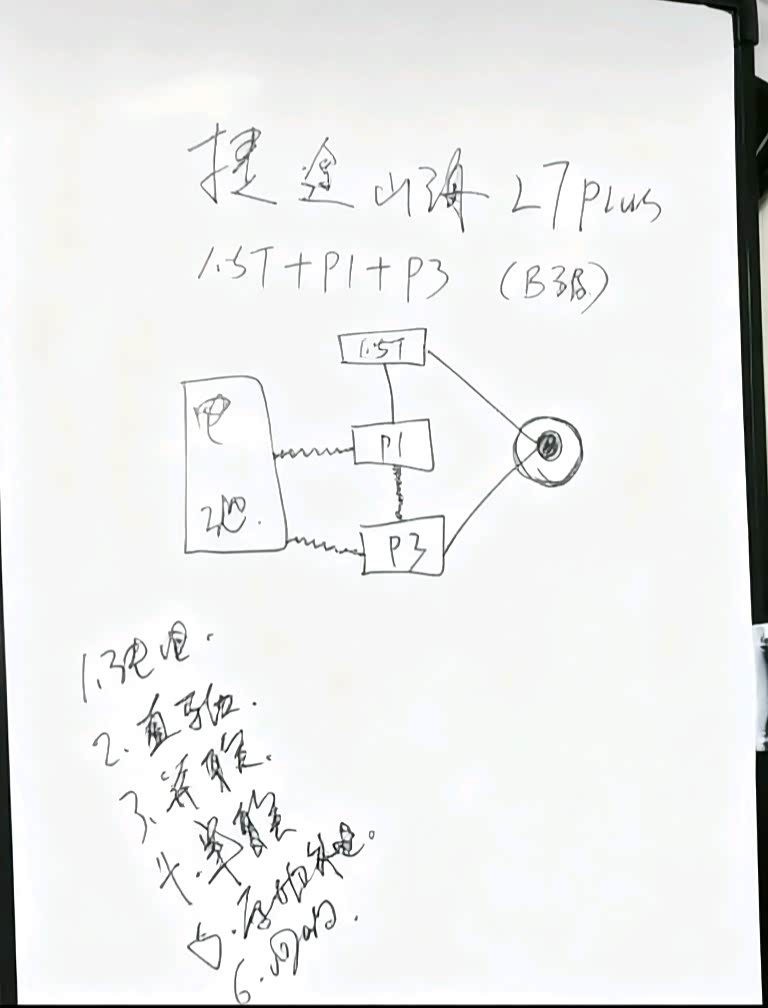 捷途山海 L7 plus
1.5T+P1+P3
1.5T
电池
P1
P3
1.纯电.
2.直驱.
3.并联.
4.串联
5.
6.回收.